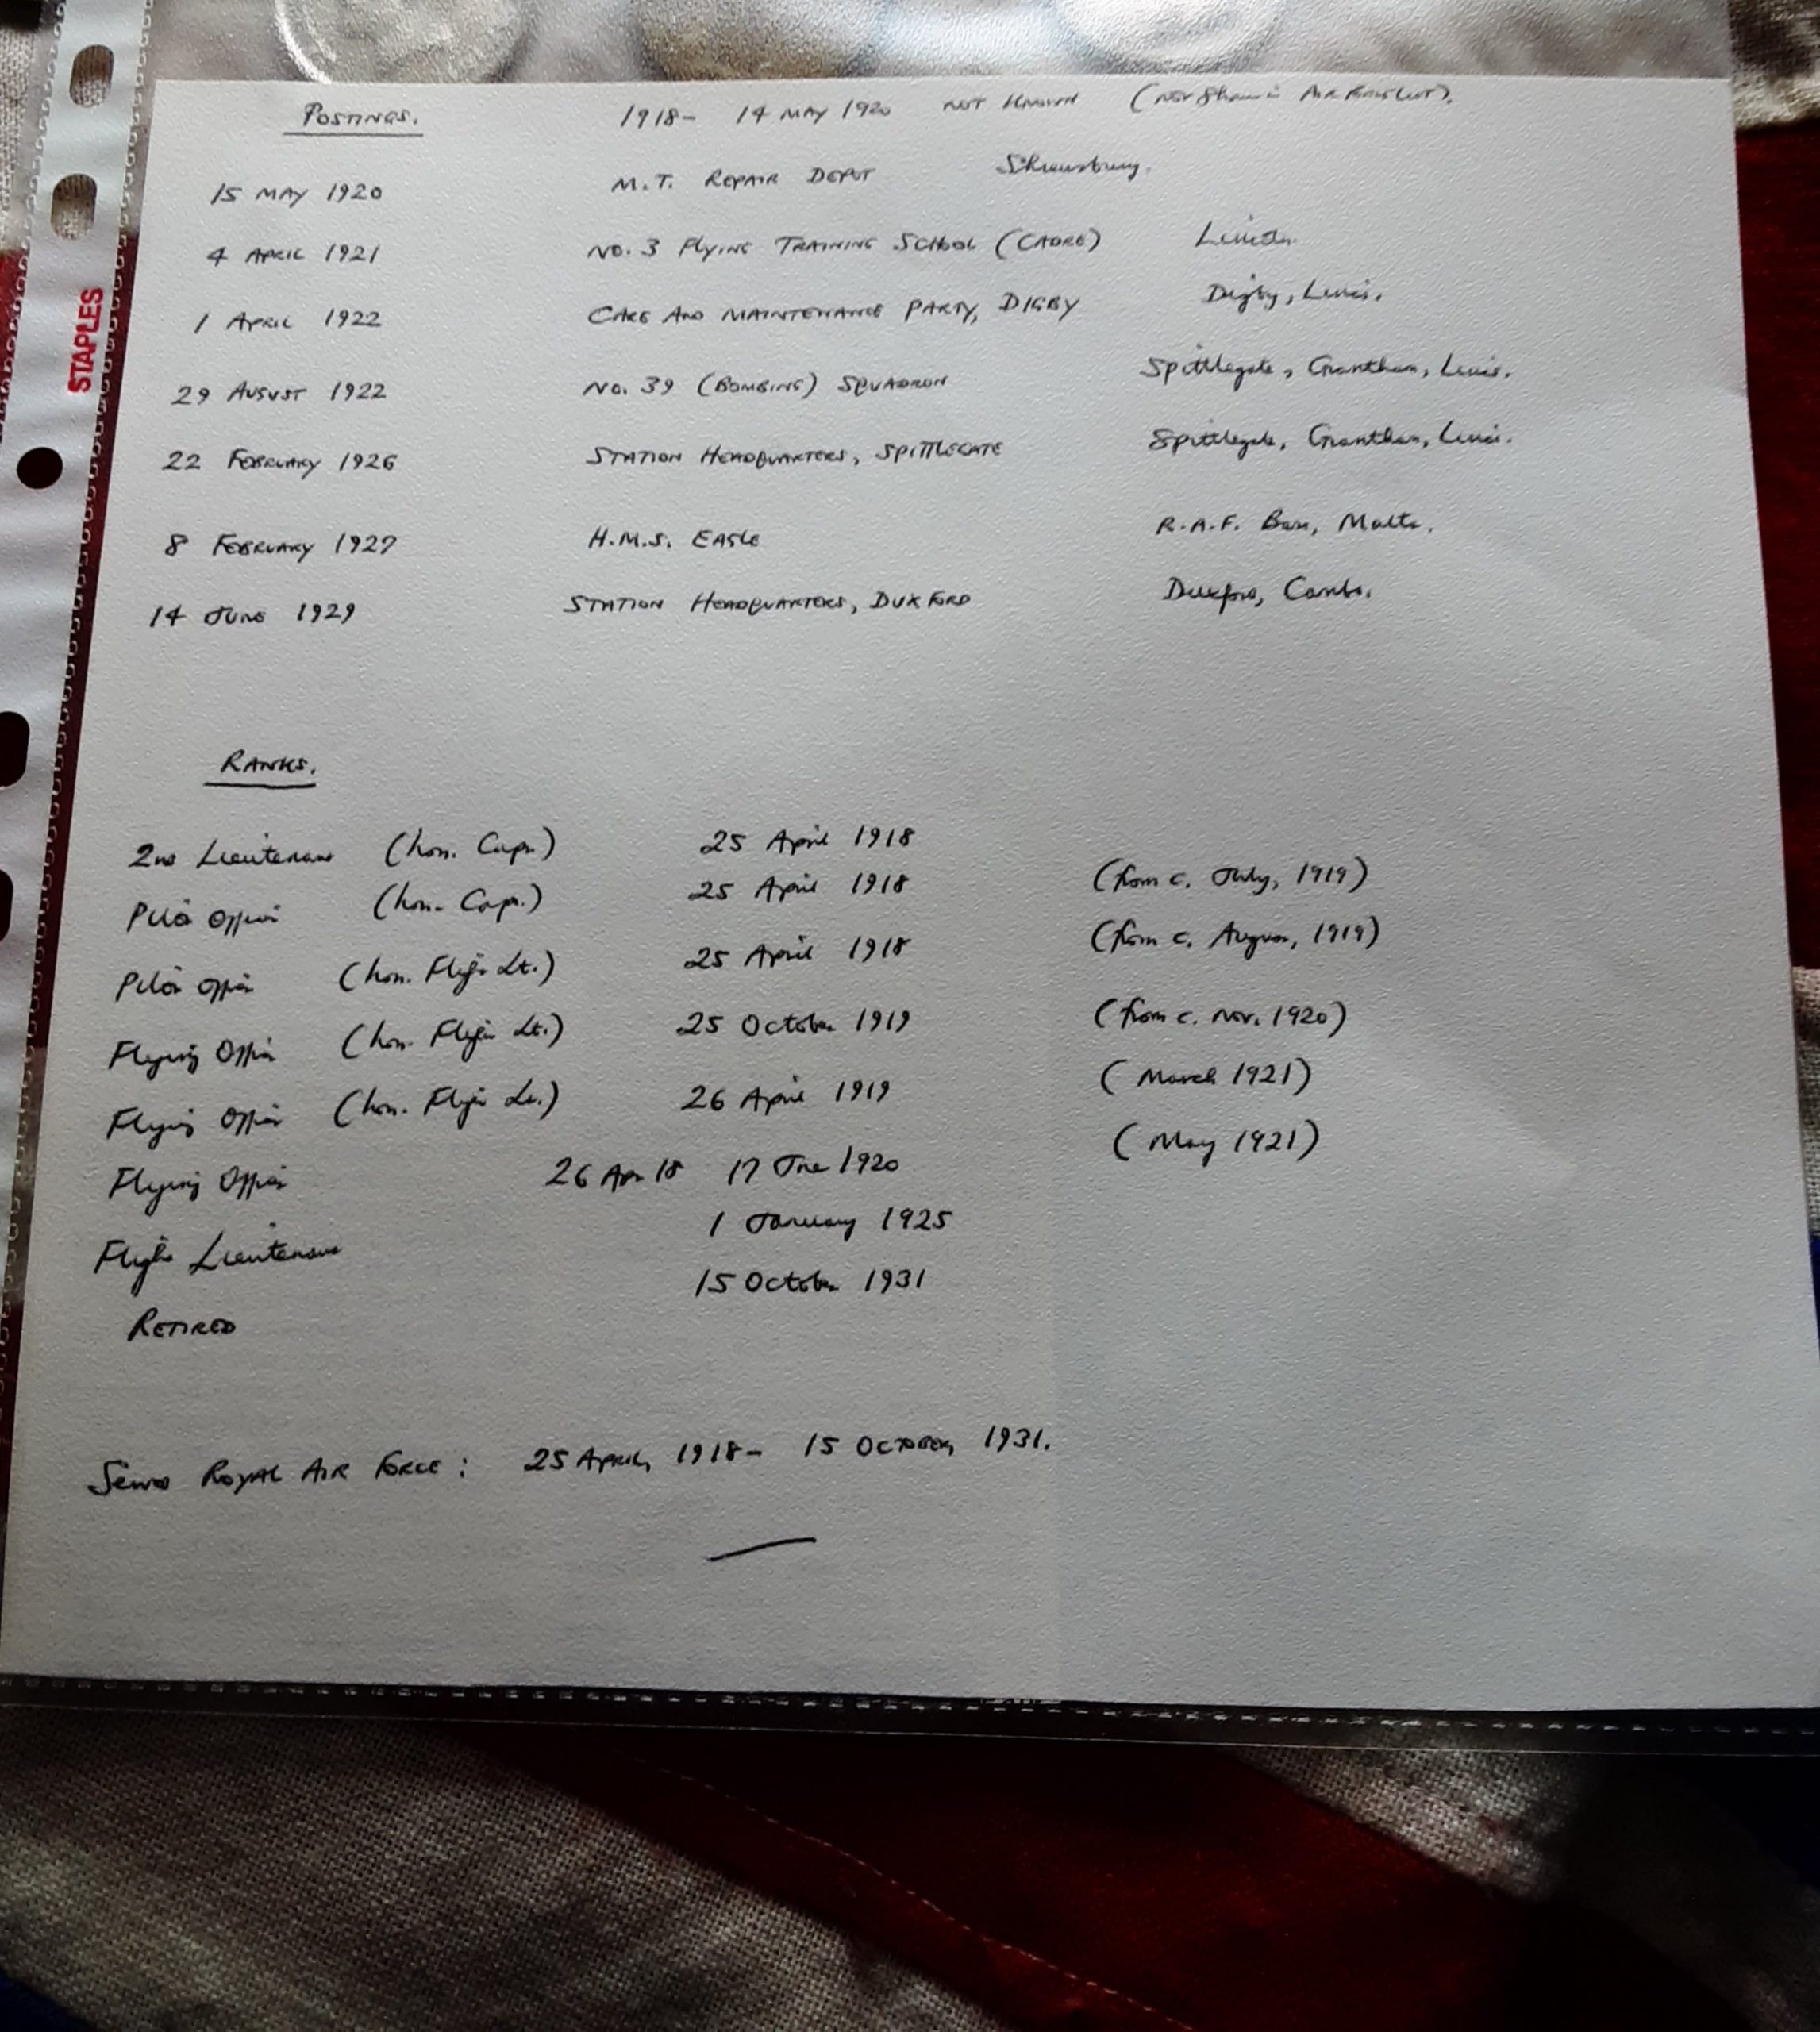 POSTINGS. 1918- 14 MAY 1920 NOT KNOWN (NOT Shown in AIR FORCE LIST).
15 MAY 1920 M.T. REPAIR DEPOT Shrewsbury.
4 APRIL 1921 NO. 3 FLYING TRAINING SCHOOL (CADRE) Lincoln.
1 APRIL 1922 CARE AND MAINTENANCE PARTY, DIGBY Digby, Lincs.
29 AUGUST 1922 NO. 39 (BOMBING) SQUADRON Spittlegate, Grantham, Lincs.
22 FEBRUARY 1926 STATION HEADQUARTERS, SPITTLEGATE Spittlegate, Grantham, Lincs.
8 FEBRUARY 1927 H.M.S. EAGLE R.A.F. Base, Malta.
14 JUNE 1929 STATION HEADQUARTERS, DUXFORD Duxford, Cambs.
STAPLES
RANKS.
2nd Lieutenant (hon. Capt.) 25 April 1918
Pilot Officer (hon. Capt.) 25 April 1918 (from c. July, 1919)
Pilot Officer (hon. Flight Lt.) 25 April 1918 (from c. August, 1919)
Flying Officer (hon. Flight Lt.) 25 October 1919 (from c. Nov. 1920)
Flying Officer (hon. Flight Lt.) 26 April 1919 (March 1921)
Flying Officer 26 Apr 18 17 June 1920 (May 1921)
Flight Lieutenant 1 January 1925
RETIRED 15 October 1931
Served ROYAL AIR FORCE: 25 APRIL, 1918- 15 OCTOBER, 1931.